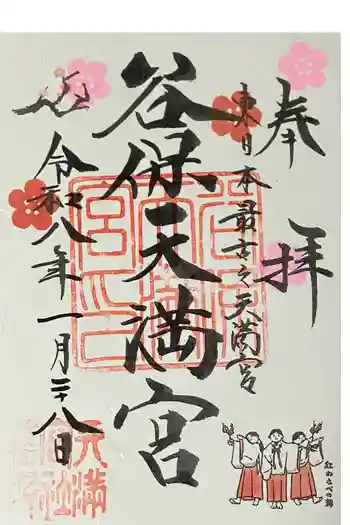 奉拝
東日本最古之天満宮
谷保天満宮
令和八年一月二十八日
紅わらべの舞